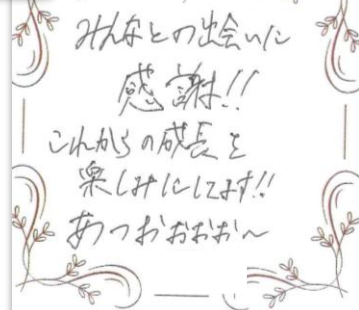 みんなとの出会いに
感謝!!
これからの成長を
楽しみにしてます!!
あつおおおお〜